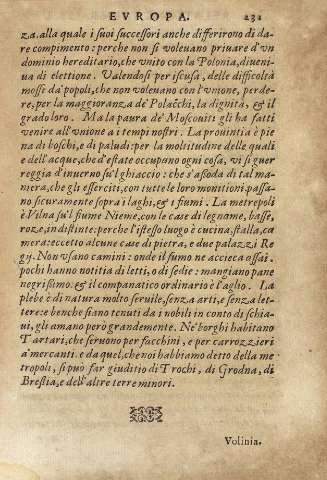 EVROPA. 231
za. alla quale i suoi successori anche differirono di da
re compimento: perche non si voleuano priuare d'vn
dominio hereditario, che vnito con la Polonia, diueni
ua di elettione. Valendosi per iscusa, delle difficoltà
mosse da' popoli, che non voleuano con l'vnione, perde
re, per la maggioranza de' Polacchi, la dignità, & il
grado loro. Ma la paura de' Moscouiti gli ha fatti
venire all'vnione a i tempi nostri. La prouintia è pie
na di boschi, e di paludi: per la moltitudine delle quali
e dell'acque, che d'estate occupano ogni cosa, vi si guer
reggia d'inuerno su'l ghiaccio: che s'assoda di tal ma
niera, che gli esserciti, con tutte le loro monitioni, passa
no sicuramente sopra i laghi, & i fiumi. La metropoli
è Vilna su'l fiume Nieme, con le case di legname, basse,
roze, indistinte: perche l'istesso luogo è cucina, stalla, ca
mera: eccetto alcune case di pietra, e due palazzi Re
gij. Non vsano camini: onde il fumo ne accieca assai.
pochi hanno notitia di letti, o di sedie: mangiano pane
negrissimo. & il companatico ordinario è l'aglio. La
plebe è di natura molto seruile, senza arti, e senza let-
tere: e benche siano tenuti da i nobili in conto di schia
ui, gli amano pero grandemente. Ne' borghi habitano
Tartari, che seruono per facchini, e per carrozzieri
a' mercanti. e da quel, che noi habbiamo detto della me
tropoli, si può far giuditio di Trochi, di Grodna, di
Brestia, e dell'altre terre minori.
Volinia.